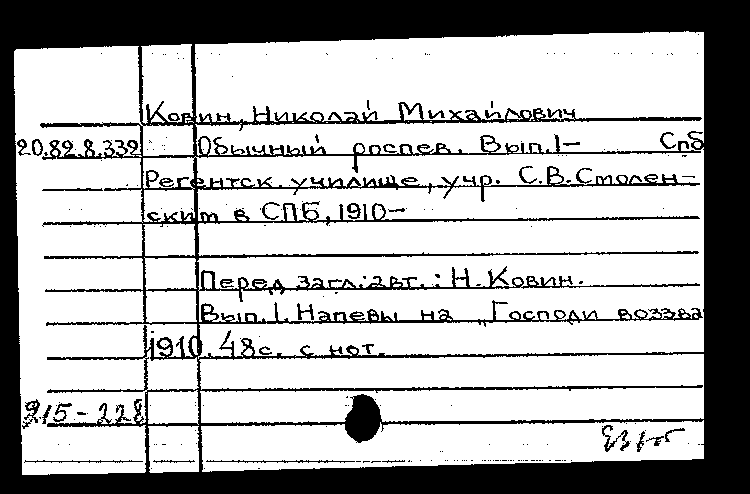 Ковин, Николай Михайлович
20.82.8.332 Обычный роспев. Вып.1- Спб
Регентск. училище, учр. С.В.Столен-
ским в СПБ, 1910-
Перед загл.:авт.: Н. Ковин.
Вып.1. Напевы на „Господи воззва
1910. 48с. с нот.
215-228